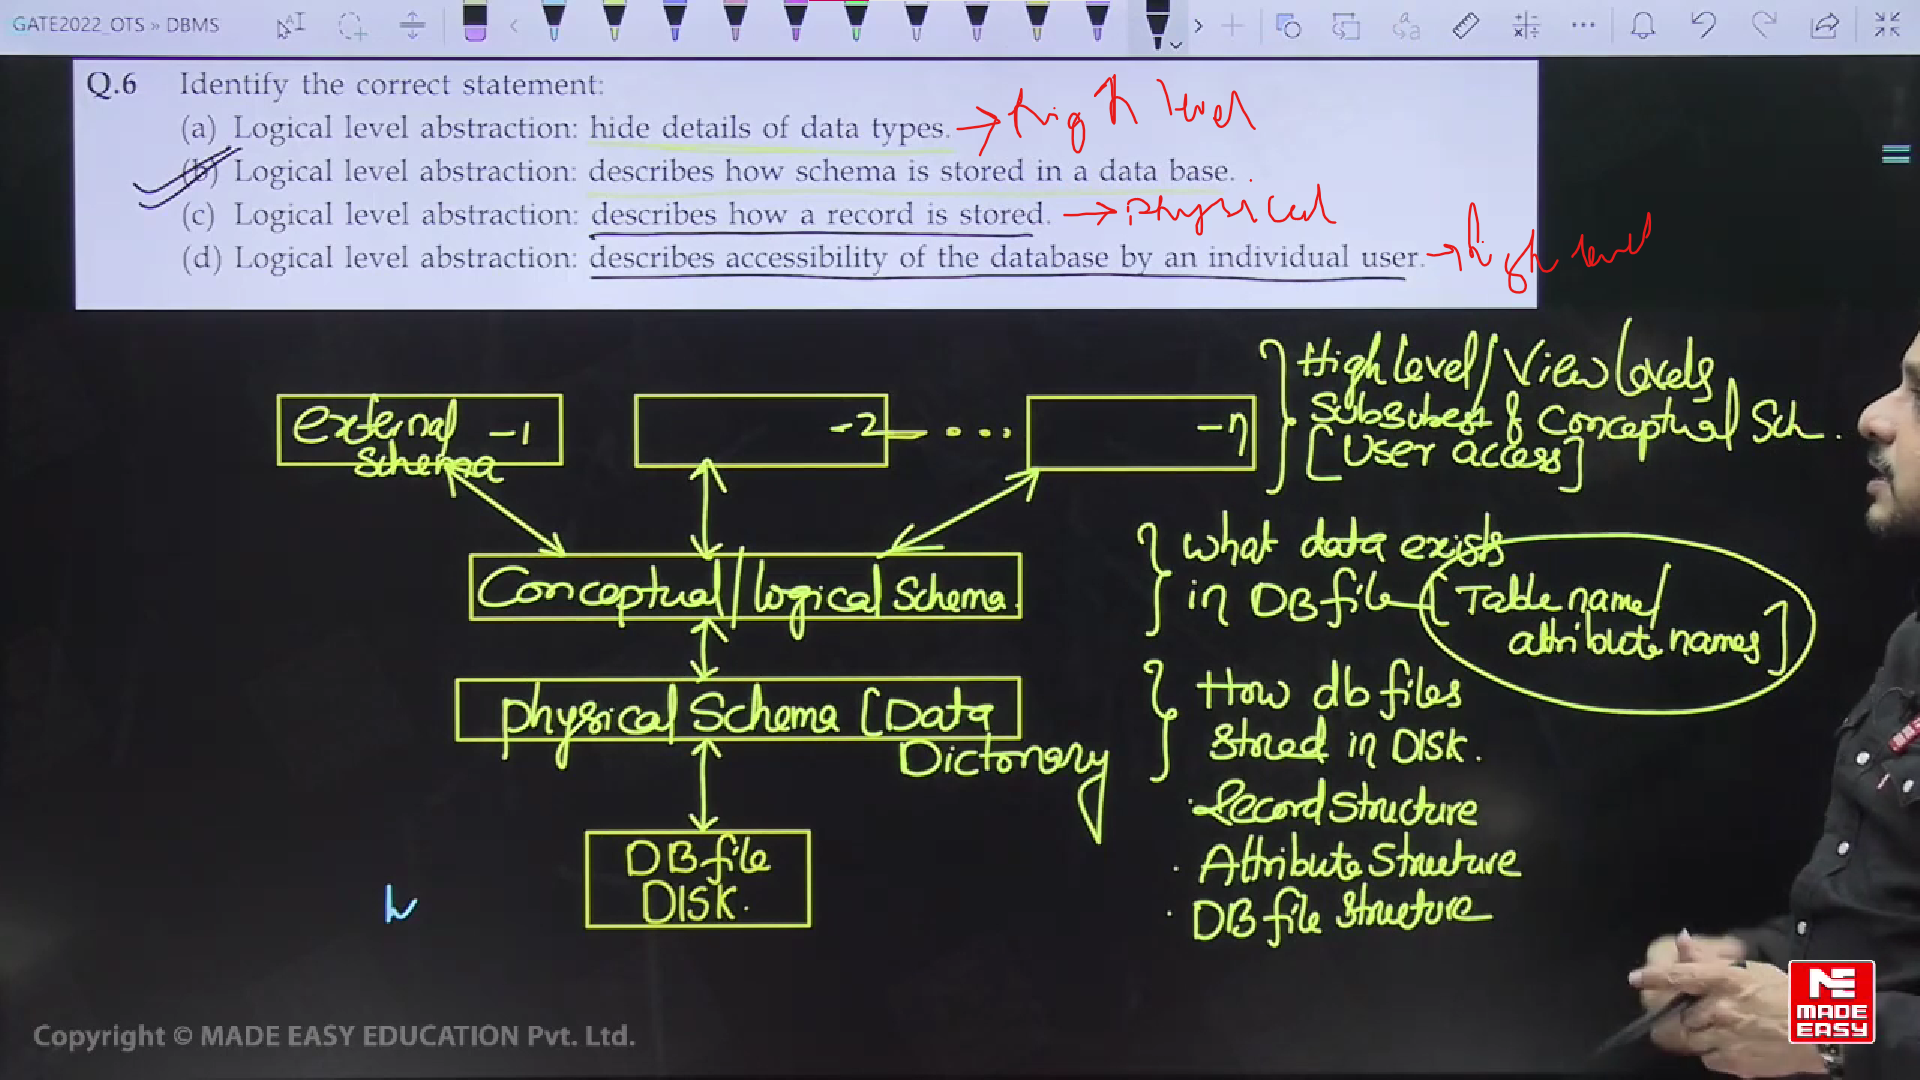 GATE2022_OTS » DBMS
Q.6 Identify the correct statement:
(a) Logical level abstraction: hide details of data types. → high level
(b) Logical level abstraction: describes how schema is stored in a data base.
(c) Logical level abstraction: describes how a record is stored. → physical
(d) Logical level abstraction: describes accessibility of the database by an individual user. → high level
External -1
Schema
-2 ... -n
High level/View levels
Conceptual Sch.
[User access]
Conceptual/logical Schema.
What data exists
in DB file [Table name/
attribute names]
Physical Schema [Data
Dictonary
How db files
Stored in DISK.
· Record Structure
· Attribute Structure
· DB file Structure
DB file
DISK.
ME
MADE
EASY
Copyright © MADE EASY EDUCATION Pvt. Ltd.